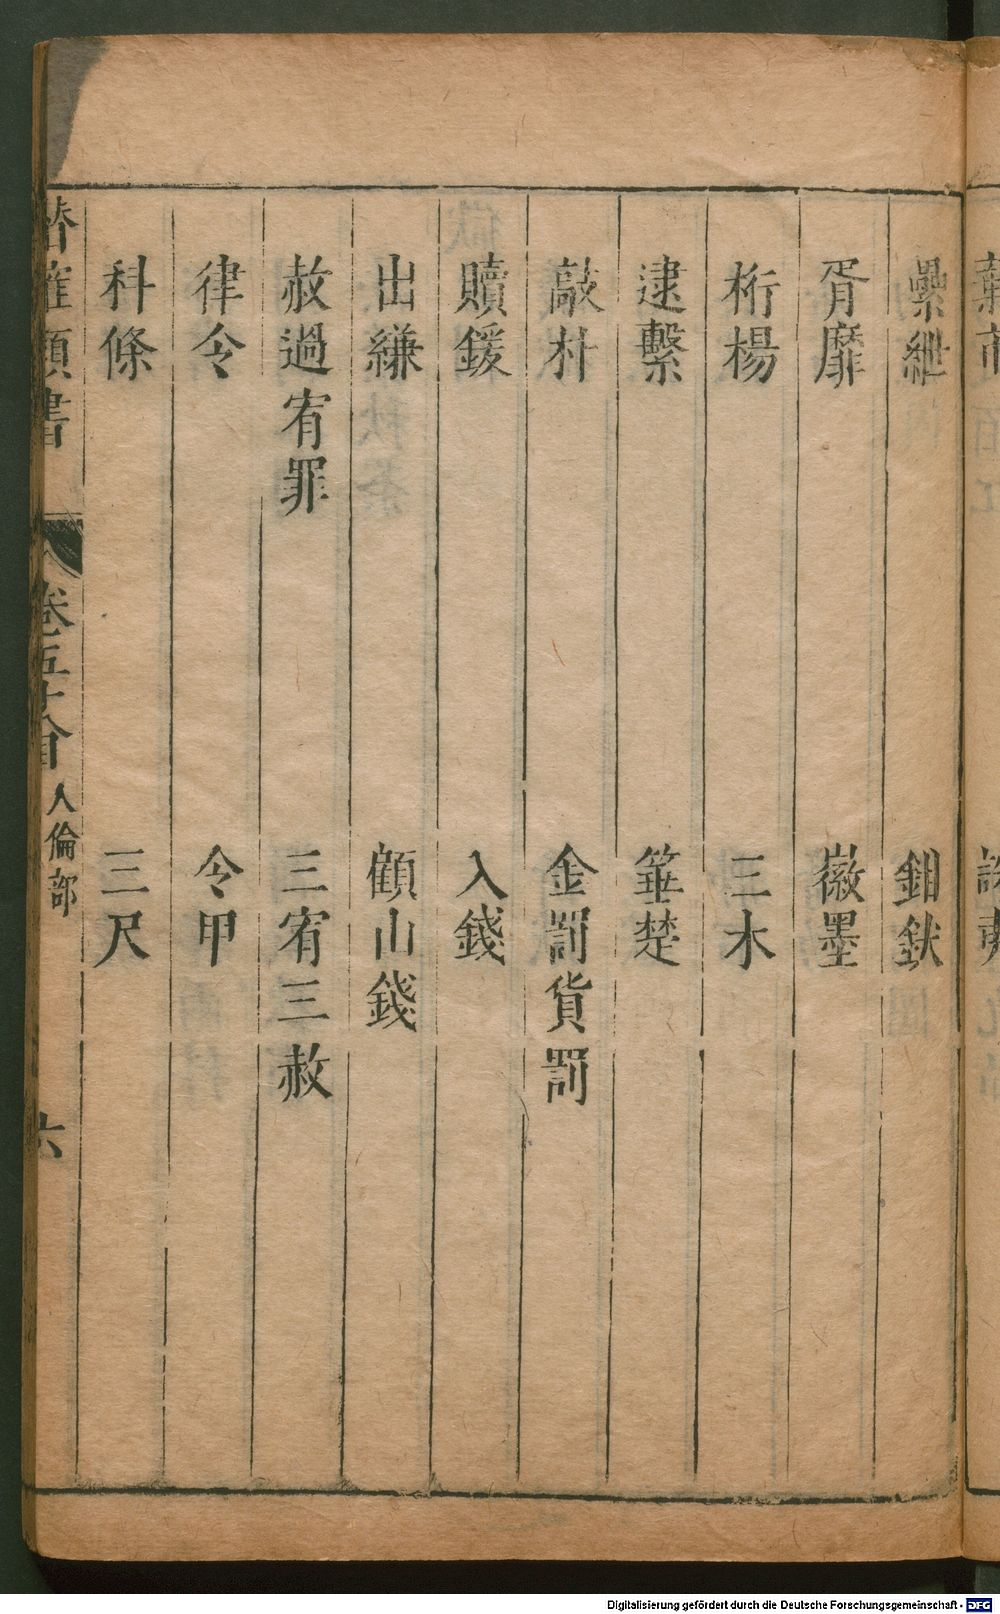 纍紲 鉗鈇
胥靡 徽墨
桁楊 三木
逮繫 箠楚
敲朴 金罰貨罰
贖鍰 入錢
出縑 顧山錢
赦過宥罪 三宥三赦
律令 令甲
科條 三尺
潛確類書 卷五十八 人倫部 六
Digitalisierung gefördert durch die Deutsche Forschungsgemeinschaft - DFG